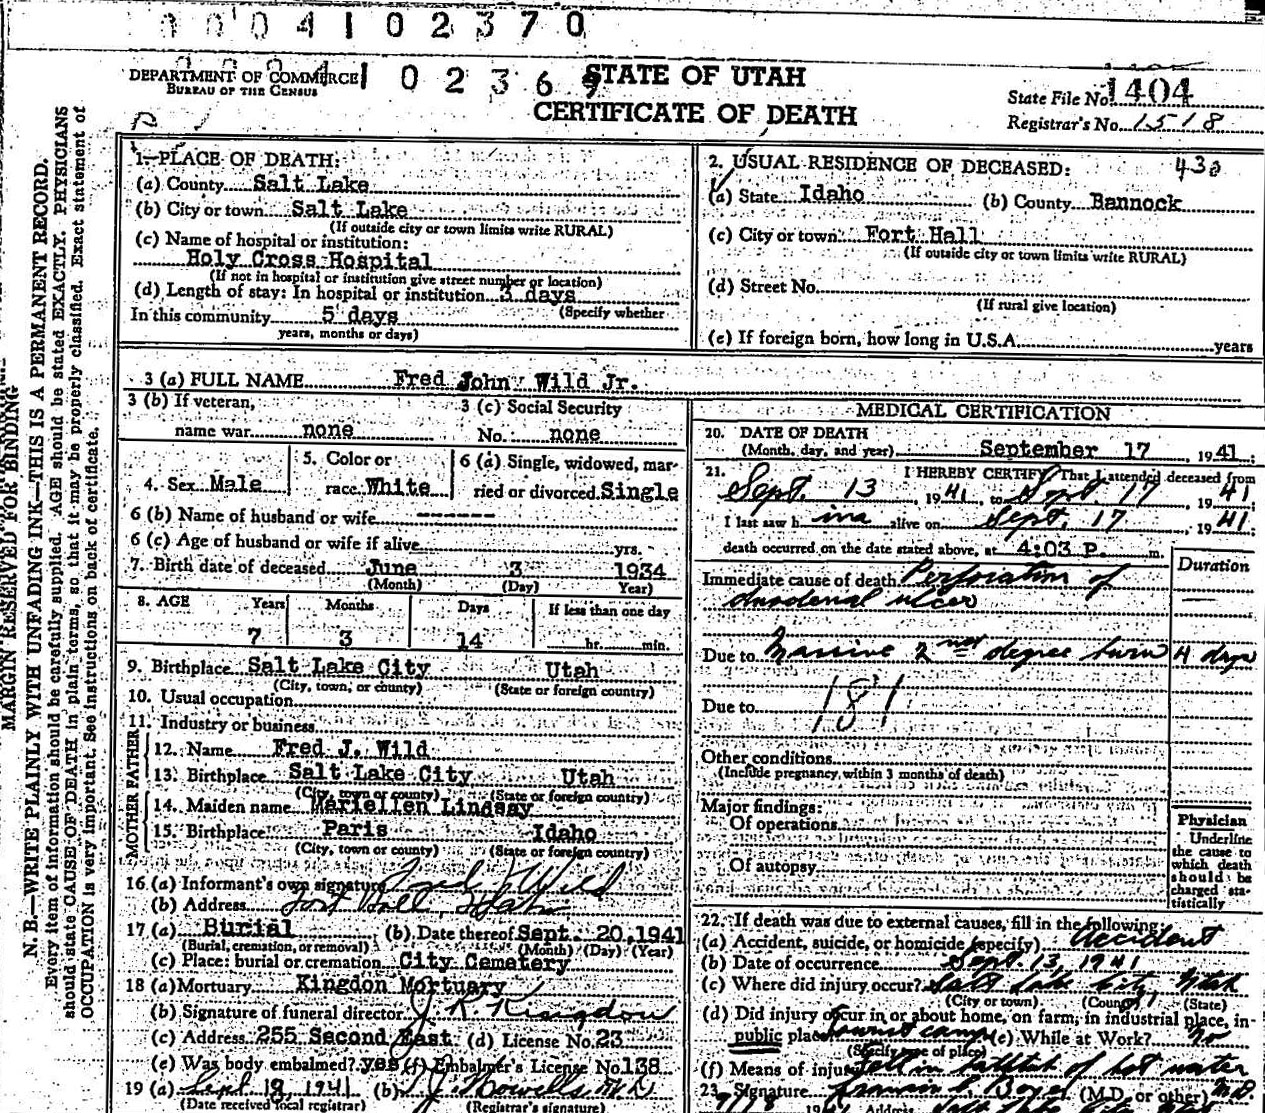 0004102370
DEPARTMENT OF COMMERCE
BUREAU OF THE CENSUS
STATE OF UTAH
CERTIFICATE OF DEATH
State File No. 1404
Registrar's No. 1518
MARGIN RESERVED FOR BINDING
N. B.—WRITE PLAINLY WITH UNFADING INK—THIS IS A PERMANENT RECORD.
Every item of information should be carefully supplied. AGE should be stated EXACTLY. PHYSICIANS
should state CAUSE OF DEATH in plain terms, so that it may be properly classified. Exact statement of
OCCUPATION is very important. See instructions on back of certificate.
1—PLACE OF DEATH:
(a) County Salt Lake
(b) City or town Salt Lake
(If outside city or town limits write RURAL)
(c) Name of hospital or institution:
Holy Cross Hospital
(If not in hospital or institution give street number or location)
(d) Length of stay: In hospital or institution 3 days
In this community 5 days (Specify whether
years, months or days)
2. USUAL RESIDENCE OF DECEASED:
(a) State Idaho (b) County Bannock
(c) City or town Fort Hall
(If outside city or town limits write RURAL)
(d) Street No.
(If rural give location)
(e) If foreign born, how long in U.S.A. years
3 (a) FULL NAME Fred John Wild Jr.
3 (b) If veteran, name war none
3 (c) Social Security No. none
4. Sex Male
5. Color or race White
6 (a) Single, widowed, married or divorced Single
6 (b) Name of husband or wife -------
6 (c) Age of husband or wife if alive yrs.
7. Birth date of deceased June 3 1934
(Month) (Day) Year)
8. AGE Years Months Days If less than one day
7 3 14 hr. min.
9. Birthplace Salt Lake City Utah
(City, town, or county) (State or foreign country)
10. Usual occupation
11. Industry or business
FATHER
12. Name Fred J. Wild
13. Birthplace Salt Lake City Utah
(City, town or county) (State or foreign country)
MOTHER
14. Maiden name Mariellen Lindsay
15. Birthplace Paris Idaho
(City, town or county) (State or foreign country)
16 (a) Informant's own signature Fred J Wild
(b) Address Fort Hall, Idaho
17 (a) Burial (b) Date thereof Sept. 20, 1941
(Burial, cremation, or removal) (Month) (Day) (Year)
(c) Place: burial or cremation City Cemetery
18 (a) Mortuary Kingdon Mortuary
(b) Signature of funeral director J. R. Kingdon
(c) Address 255 Second East (d) License No. 23
(e) Was body embalmed? yes (f) Embalmer's License No. 138
19 (a) Sept 19, 1941 (b) M.D.
(Date received local registrar) (Registrar's signature)
MEDICAL CERTIFICATION
20. DATE OF DEATH
(Month, day, and year) September 17, 1941;
21. I HEREBY CERTIFY, That I attended deceased from
Sept. 13, 1941, to Sept. 17, 1941
I last saw h im alive on Sept. 17, 1941;
death occurred on the date stated above, at 4:03 P. m.
Duration
Immediate cause of death Perforation of
duodenal ulcer
Due to Massive 2nd degree burn 4 days
Due to 181
Other conditions
(Include pregnancy within 3 months of death)
Major findings:
Of operations
Of autopsy
Physician
Underline
the cause to
which death
should be
charged sta-
tistically
22. If death was due to external causes, fill in the following:
(a) Accident, suicide, or homicide (specify) Accident
(b) Date of occurrence Sept. 13, 1941
(c) Where did injury occur? Salt Lake City Utah
(City or town) (County) (State)
(d) Did injury occur in or about home, on farm, in industrial place, in
public place tourist camp (e) While at Work? No
(Specify type of place)
(f) Means of injury Fell in bathtub of hot water
23. Signature (M.D. or other) M.D.